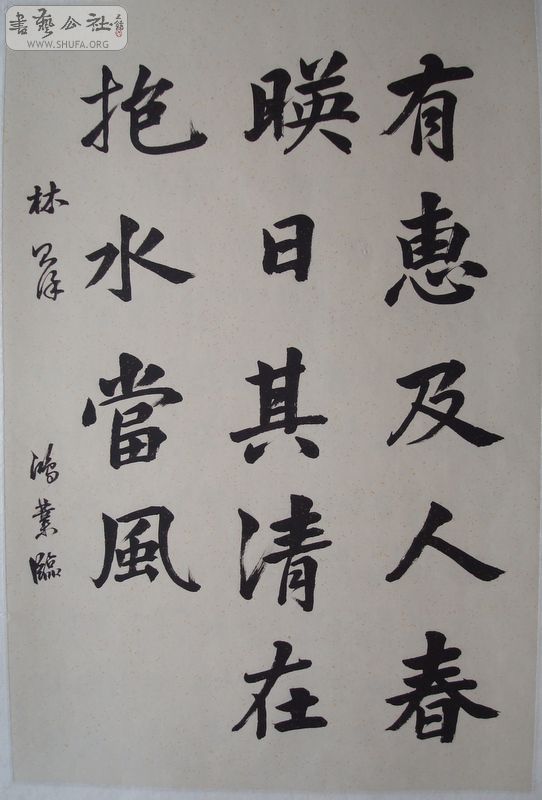 書藝公社
WWW.SHUFA.ORG
有惠及人春
暎日其清在
抱水當風
林
鴻業臨